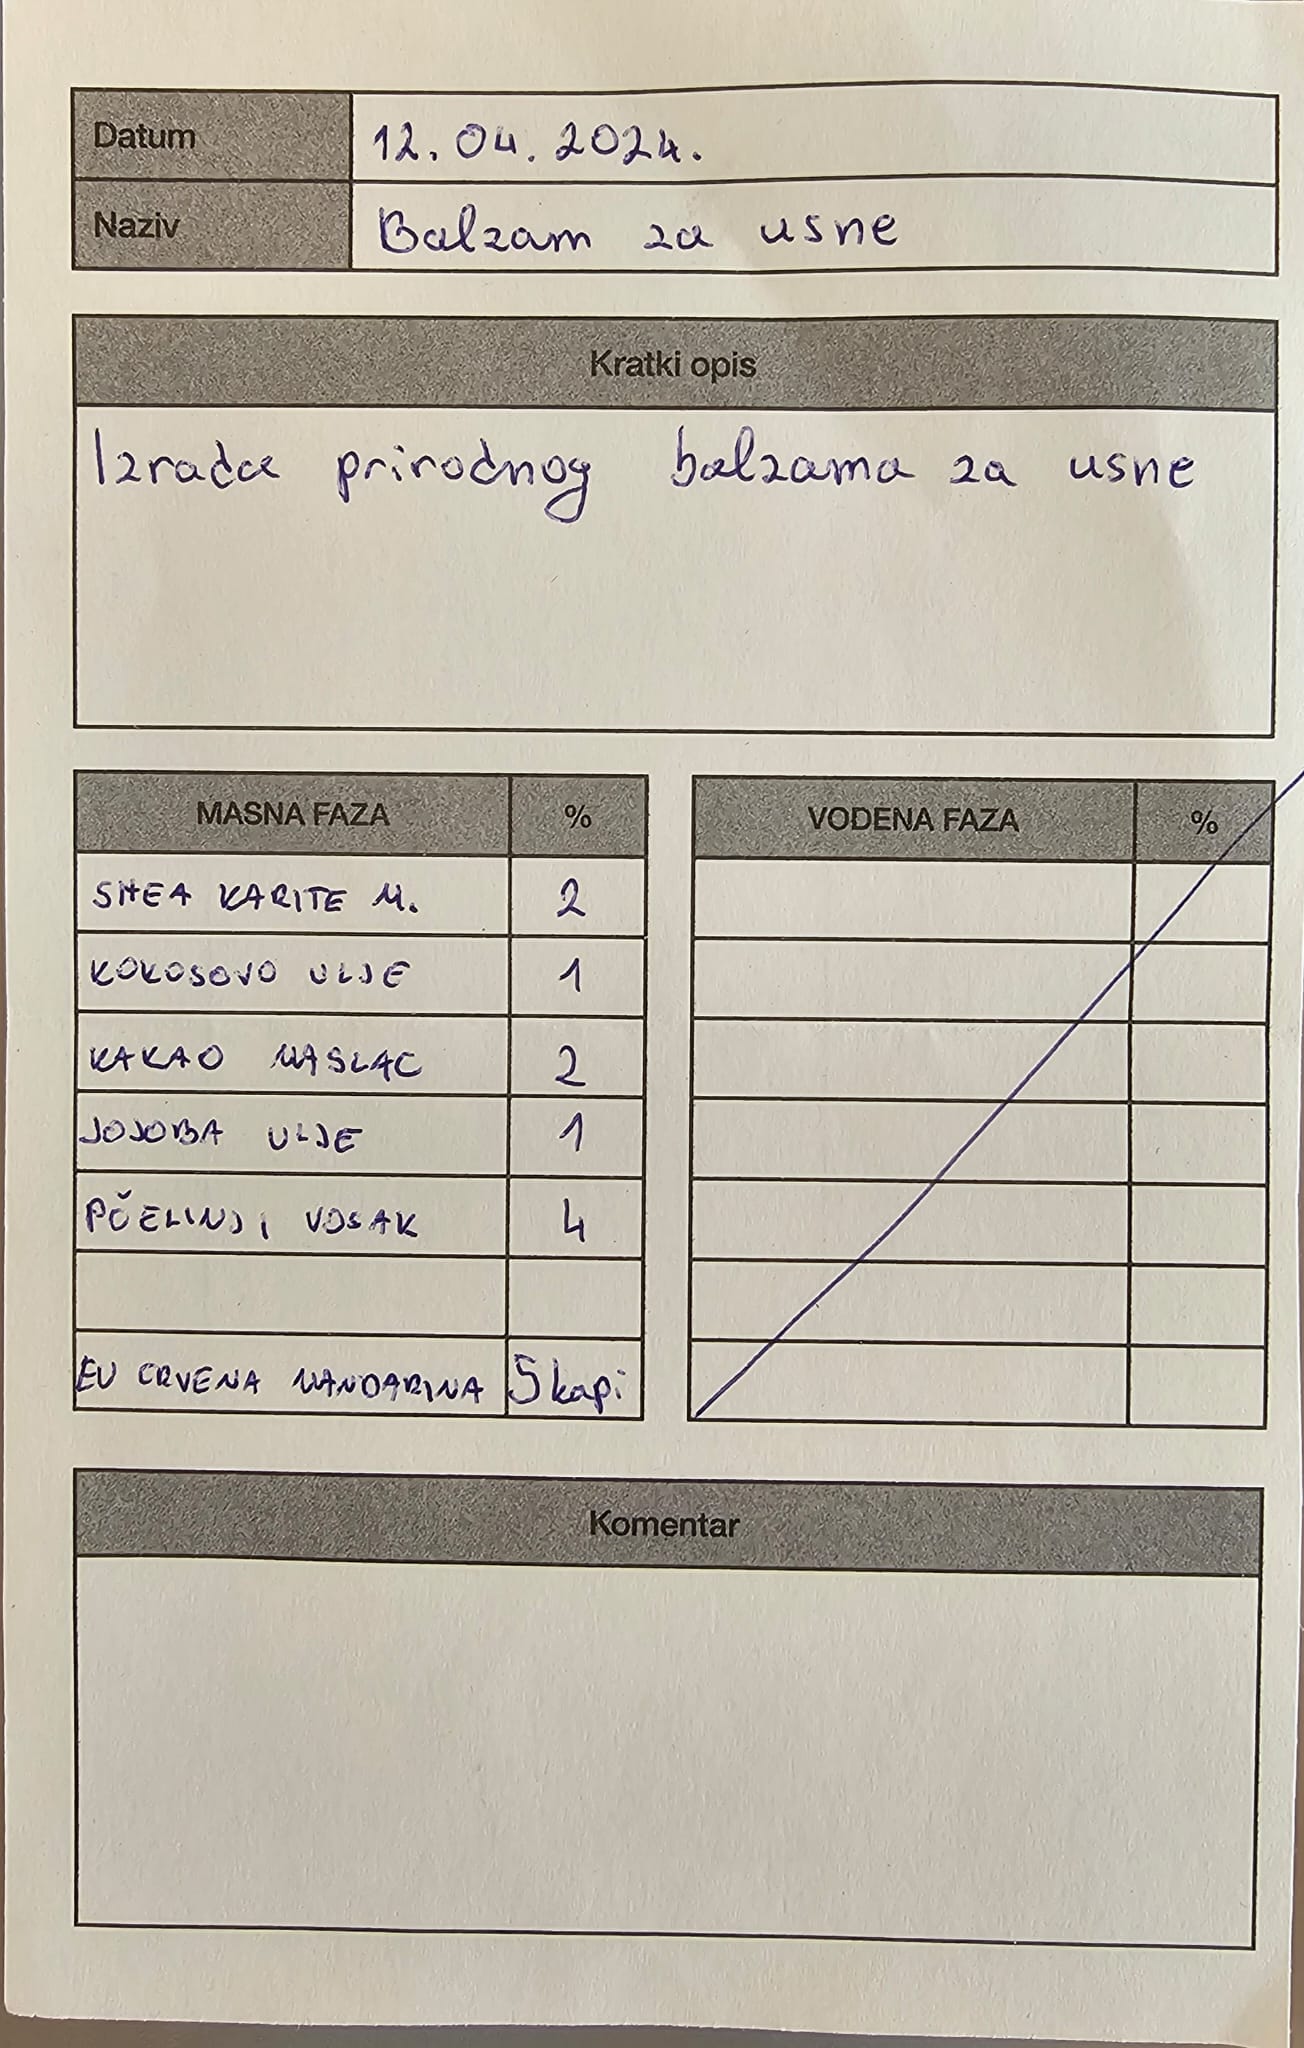 Datum 12.04.2024.
Naziv Balzam za usne
Kratki opis
Izrada prirodnog balzama za usne
MASNA FAZA %
SHEA KARITE M. 2
KOKOSOVO ULJE 1
KAKAO MASLAC 2
JOJOBA ULJE 1
PČELINJI VOSAK 4
EU CRVENA MANDARINA 5 kapi
VODENA FAZA %
Komentar